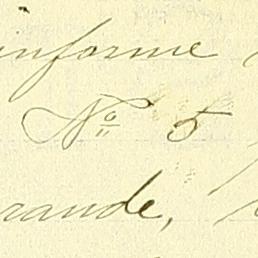 informe
Nº 5
rande,